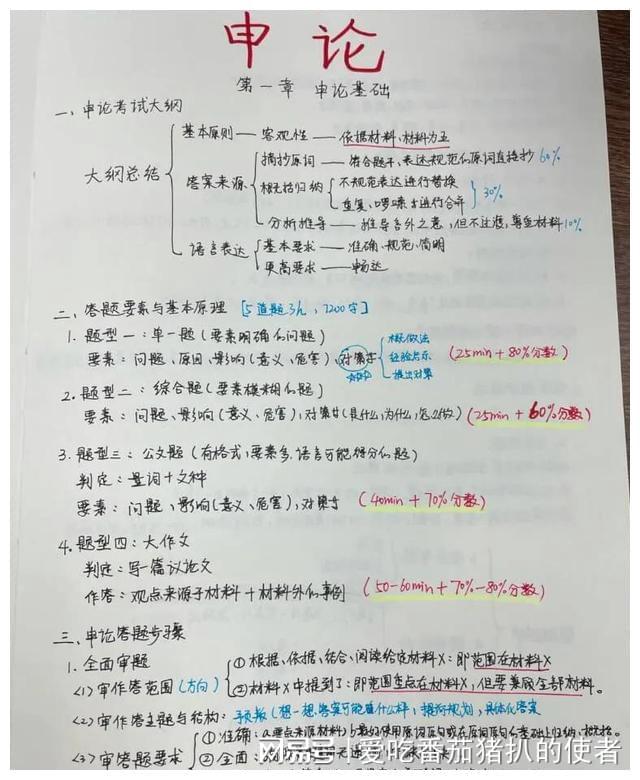 申论
第一章 申论基础
一、申论考试大纲
大纲总结
基本原则——客观性——依据材料、材料为王
答案来源
摘抄原词——符合题干、表达规范的原词直接抄 60%
概括归纳
不规范表达进行替换
重复、啰嗦的进行合并
30%
分析推导——推导言外之意,但不过度,尊重材料10%
语言表达
基本要求——准确、规范、简明
更高要求——畅达
二、答题要素与基本原理 [5道题3h,1200字]
1. 题型一:单一题(要素明确的问题)
要素:问题、原因、影响(意义、危害)、对策
概括做法
经验启示
提出对策
(25min+80%分数)
2. 题型二:综合题(要素模糊的题)
要素:问题、影响(意义、危害)、对策(是什么,为什么,怎么做) (25min+60%分数)
3. 题型三:公文题(有格式,要素多,语言可能得分的题)
判定:量词+文种
要素:问题、影响(意义、危害)、对策 (40min+70%分数)
4. 题型四:大作文
判定:写一篇议论文
作答:观点来源于材料+材料外的事例 (50-60min+70%-80%分数)
三、申论答题步骤
1. 全面审题
<1>审作答范围(方向)
①根据、依据、结合、阅读给定材料X:即范围在材料X
②材料X中提到……:即范围重点在材料X,但要兼顾全部材料。
<2>审作答主题与结构:预判(想一想答案可能是什么样,提前规划),具体化答案
<3>审答题要求
①准确:a.要点来源材料
②全面:
搜狐号@爱吃番茄猪扒的使者